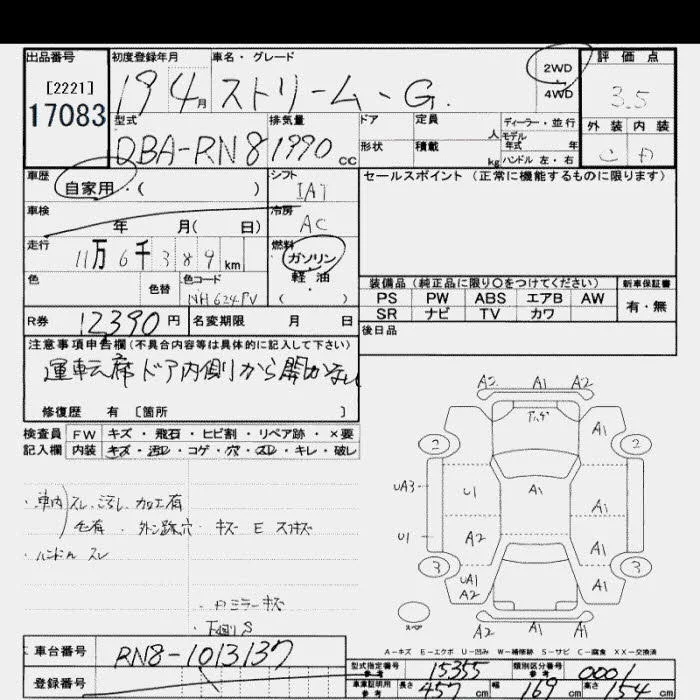 出品番号 初度登録年月 車名・グレード 2WD 4WD 評価点
[2221] 17083 19 4月 ストリーム G. 3.5
型式 排気量 ドア 定員 人 ディーラー・並行 外装 内装
DBA-RN8 1990 cc 形状 積載 kg モデル年式 年 ハンドル 左・右
車歴 自家用・( ) シフト IAT セールスポイント (正常に機能するものに限ります)
車検 年 月( 日) 冷房 AC
走行 11万6千389km 燃料 ガソリン 軽油 ( )
色 色替 色コード NH624PV 装備品 (純正品に限り〇をつけてください) 新車保証書
PS PW ABS エアB AW 有・無
SR ナビ TV カワ
R券 12390円 名変期限 月 日 後日品
注意事項申告欄(不具合内容等は具体的に記入して下さい)
運転席ドア内側から開かない
修復歴 有 [箇所 ]
検査員 FW キズ・飛石・ヒビ割・リペア跡・×要
記入欄 内装 キズ・汚レ・コゲ・穴・スレ・キレ・破レ
・車内 スレ、汚レ、加工有
・ハンドル スレ
・Rミラーキズ
・下回りS
A2 A1 A2
2 A1 2
UA3 U1 A1 A1
U1 A2 A1
3 UA1 A2 A1 3
スペア A2 A1 A1
A-キズ E-エクボ U-凹み W-補修跡 S-サビ C-腐食 XX-交換済
車台番号 RN8-1013137
登録番号
型式指定番号 参考 15355 類別区分番号 参考 0001
車庫証明用 参考 長さ 457cm 幅 169cm 高さ 154cm